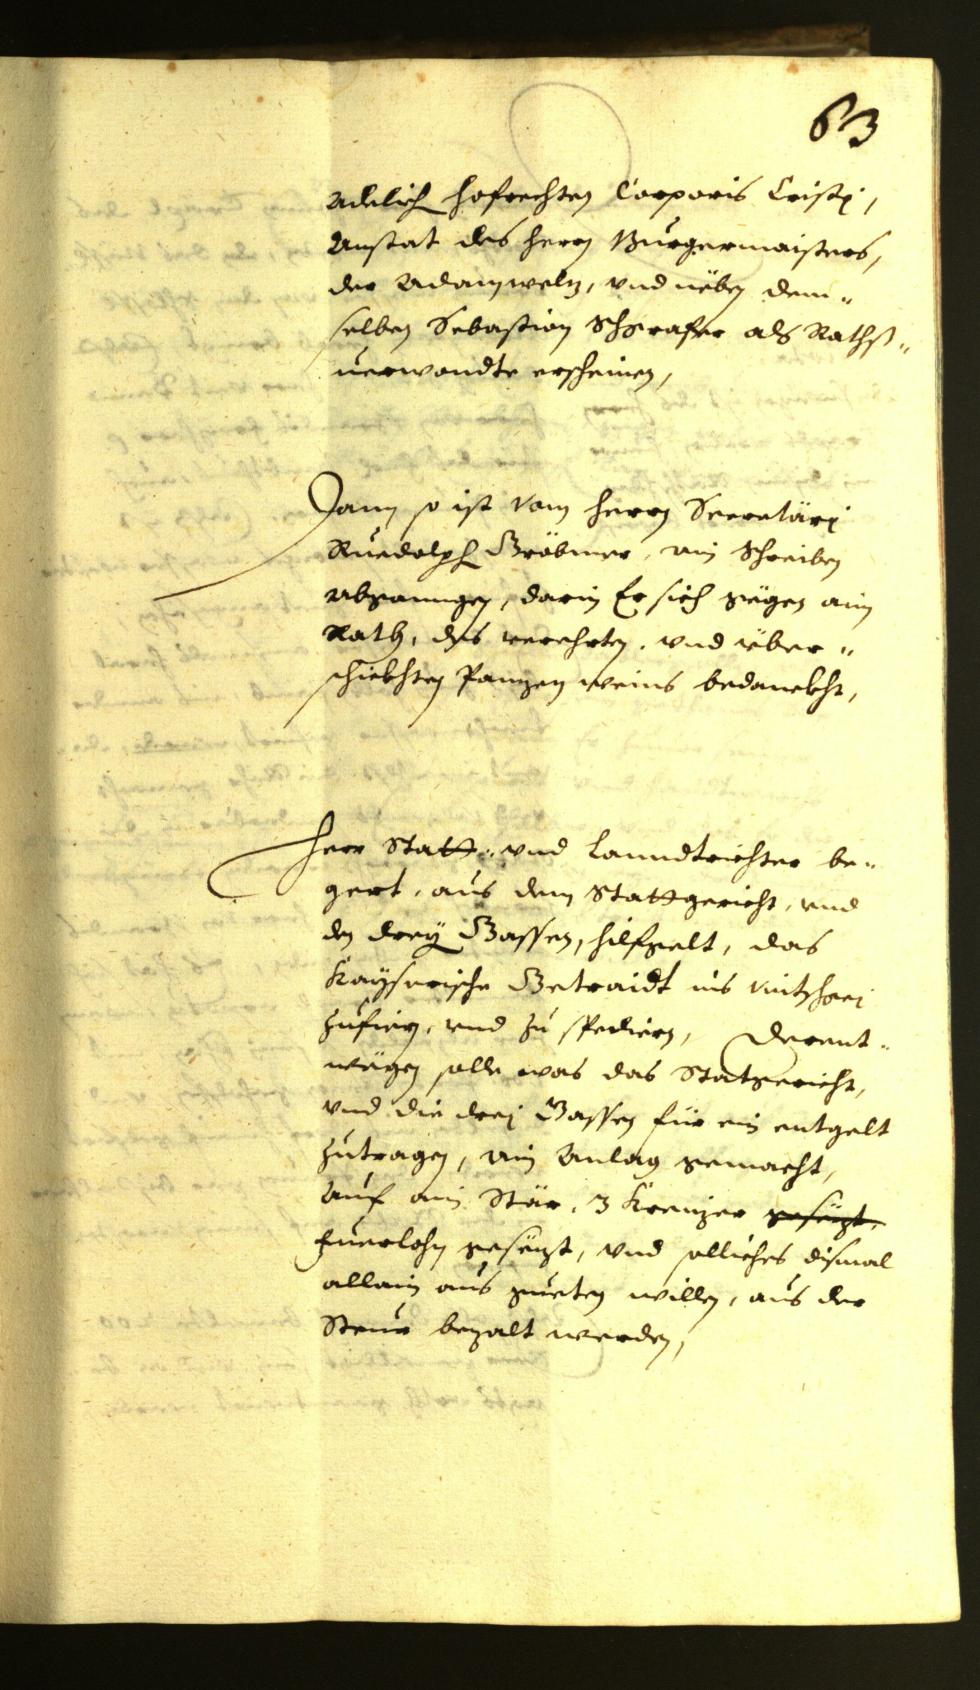 63
Adelich hofrechten Corporis Cristj,
Anstat des herrn Burgermaisters,
der Adam welz, vnd neben dem„
selben Sebastian Schgrafer als Raths„
verwandte erscheinen,
Dann so ist vom herrn Secretärj
Ruedolph Gröbmer, ain Schreiben
abganngen, darin Er sich gegen aim
Rath, des verehrten, vnd über„
schickhten Panzen weins bedanckht,
Herr Statt„ vnd Lanndtrichter be„
gert, aus dem Stattgericht, vnd
den dreÿ Gassen, hilfgelt, das
Kaÿserische Getraidt ins Vintschgej
zufiern, vnd zu spediern, Derent„
wegen solle was das Statgericht,
vnd die drej Gassen für ein entgelt
zutragen, ain Anlag gemacht,
Auf ain Stär, 3 Kreuzer gesezt,
fuerlohn gesezt, vnd solliches dismal
allain aus gueten willen, aus der
Steur bezalt werden,